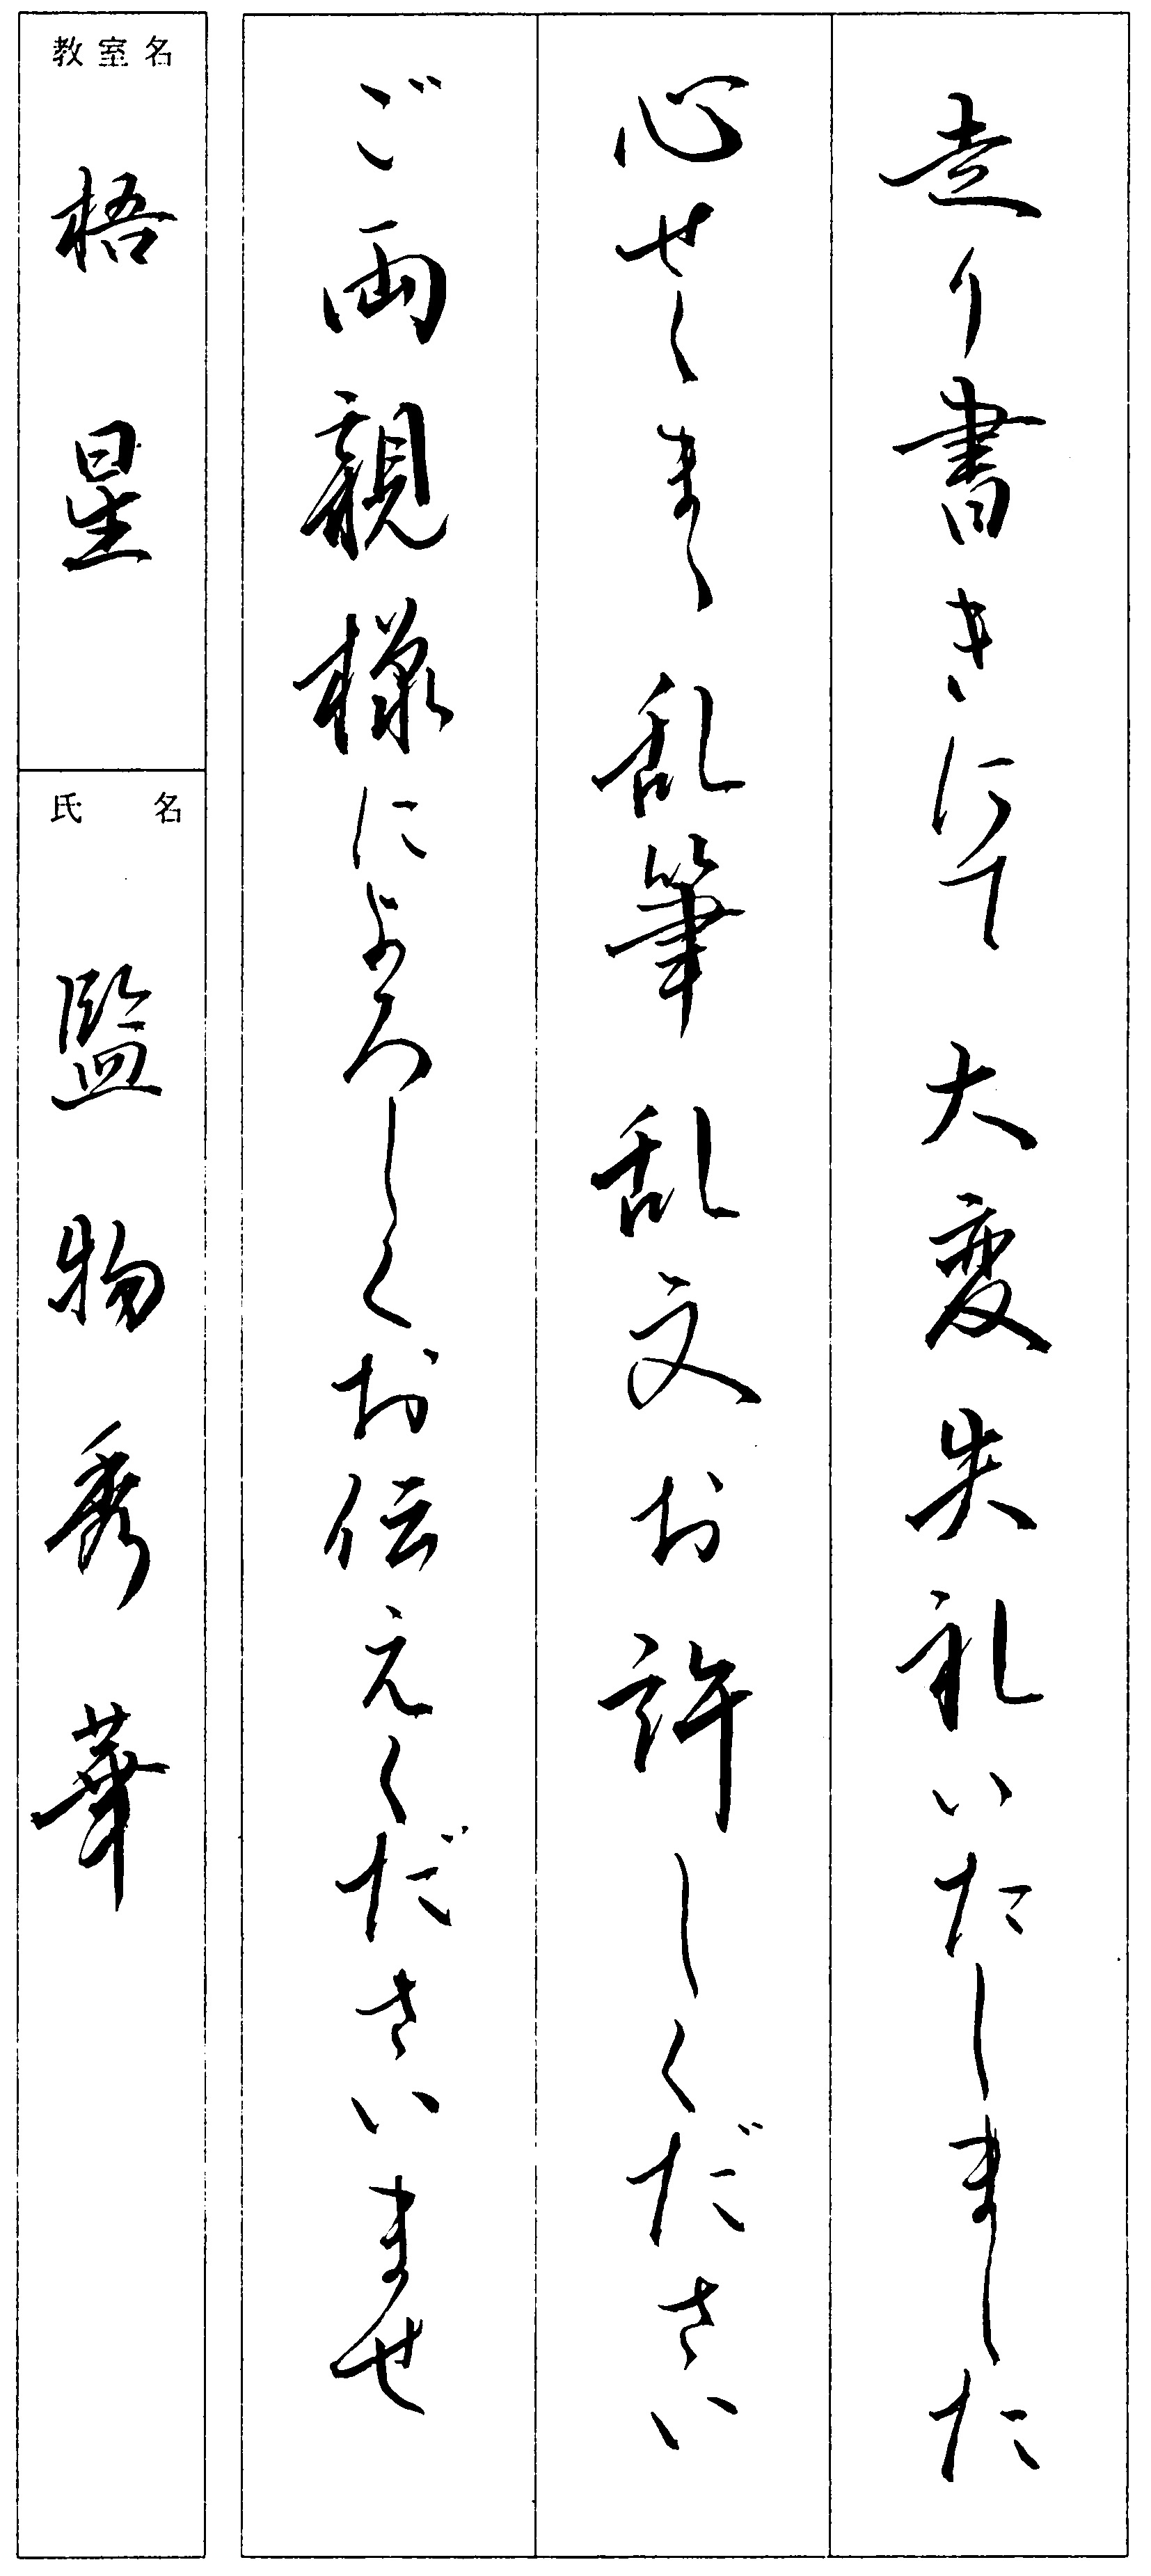 走り書きにて大変失礼いたしました
心せくまゝ乱筆乱文お許しください
ご両親様によろしくお伝えくださいませ
教室名
梧星
氏名
監物秀華